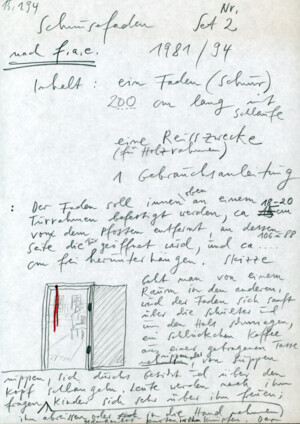 13.1.94
Schmusefaden
Nr.
Set 2
nach f.a.e.
1981/94
Inhalt: ein Faden (Schnur)
200 cm lang mit
Schlaufe
eine Reisszwecke
(für Holzrahmen)
1 Gebrauchsanleitung
: Der Faden soll innen oben an einem
Türrahmen befestigt werden, ca 18-20 cm
vom Pfosten entfernt, an dessen
Seite die geöffnet wird, und ca
cm frei herunterhängen. Skizze
Geht man von einem
Raum in den anderen,
wird der Faden sich sanft
über die Schulter und
um den Hals schmiegen,
ein Schlückchen Kaffee
aus einer getragenen Tasse
nippen, sich durchs Gesicht und über den
Kopf schlängeln. Leute werden nach ihm
fragen, Kinder sich sehr über ihn freuen;
ihn abreissen oder in die Hand nehmen